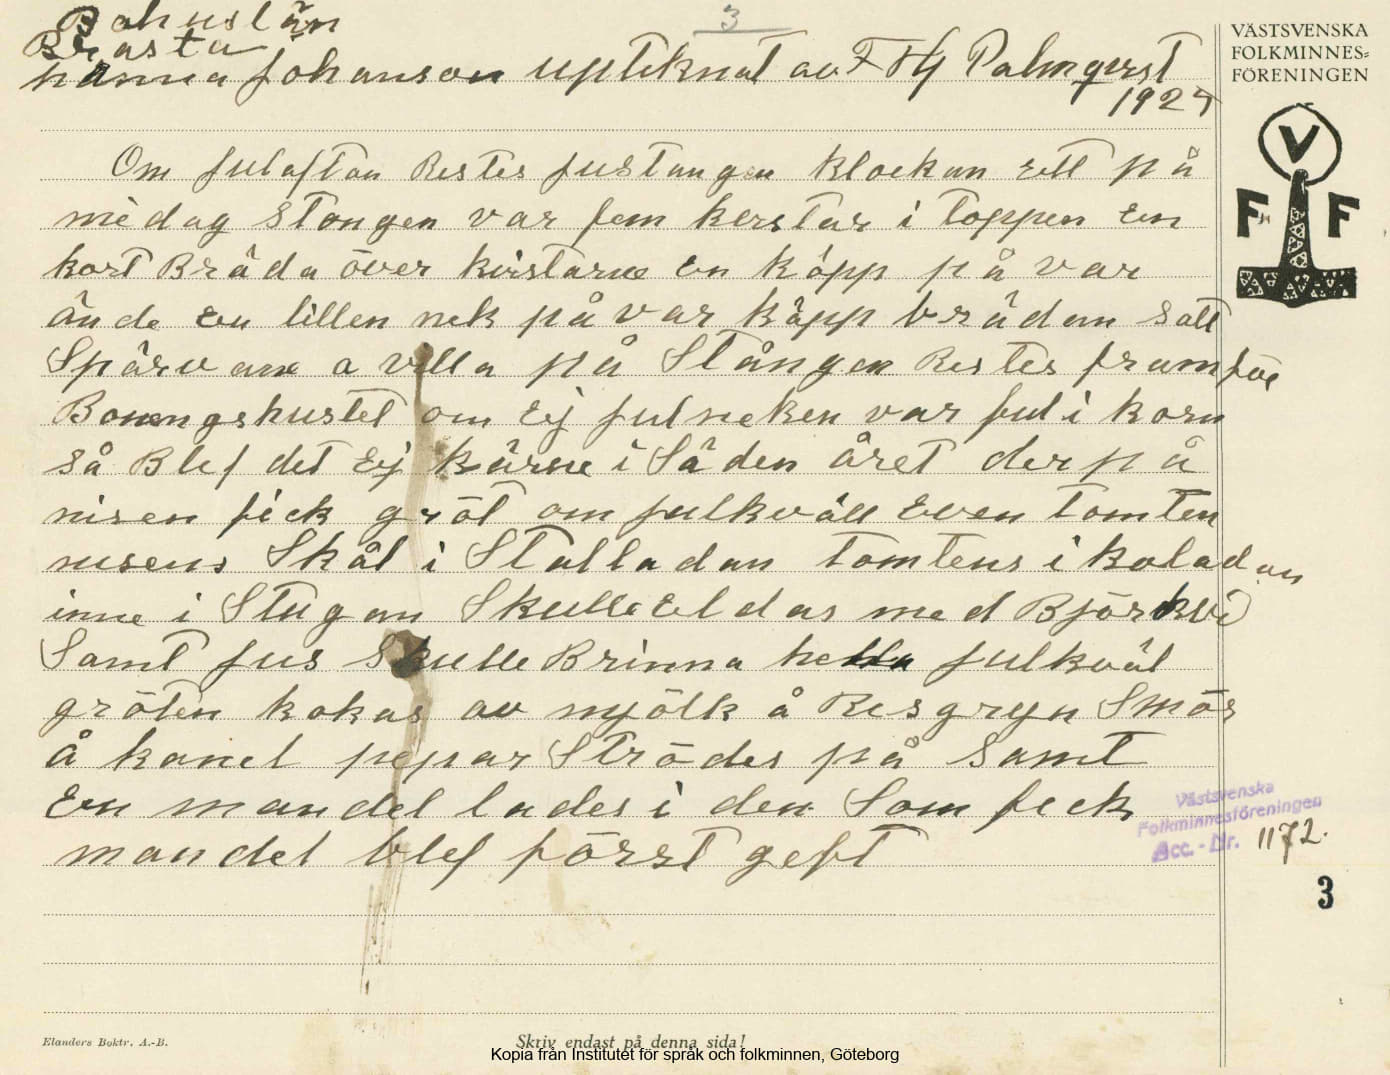 3
Bohuslän
Brasta
hanna Johanson uptiknat av F Hj Palmqvist
1927
VÄSTSVENSKA
FOLKMINNES-
FÖRENINGEN
V
F F
Om julaftan Restes justangen klockan ett på
medag Stongen var fem kvistar i toppen En
kort Bräda över kvistarne En käpp på var
ände En lillen nek på var käpp brädan satt
Spärvane a villa på Stången Restes framför
Boningshustet om Ej julneken var ful i korn
så Blef det Ej kärne i Säden året der på
nisen fick gröt om julkväll Even tomten
nisens Skål i Stalladan tomtens i koladan
inne i Stugan Skulle Eldas med Björkvi
Samt jus Skulle Brinna hella julkväl
gröten kokas av mjölk å Resgryn Smör
å kanel pepar Strödes på samt
En mandel lades i den Som feck
mandel blef först geft
Västsvenska
Folkminnesföreningen
Acc. - Nr. 1172.
3
Elanders Boktr. A.-B.
Skriv endast på denna sida!
Kopia från Institutet för språk och folkminnen, Göteborg